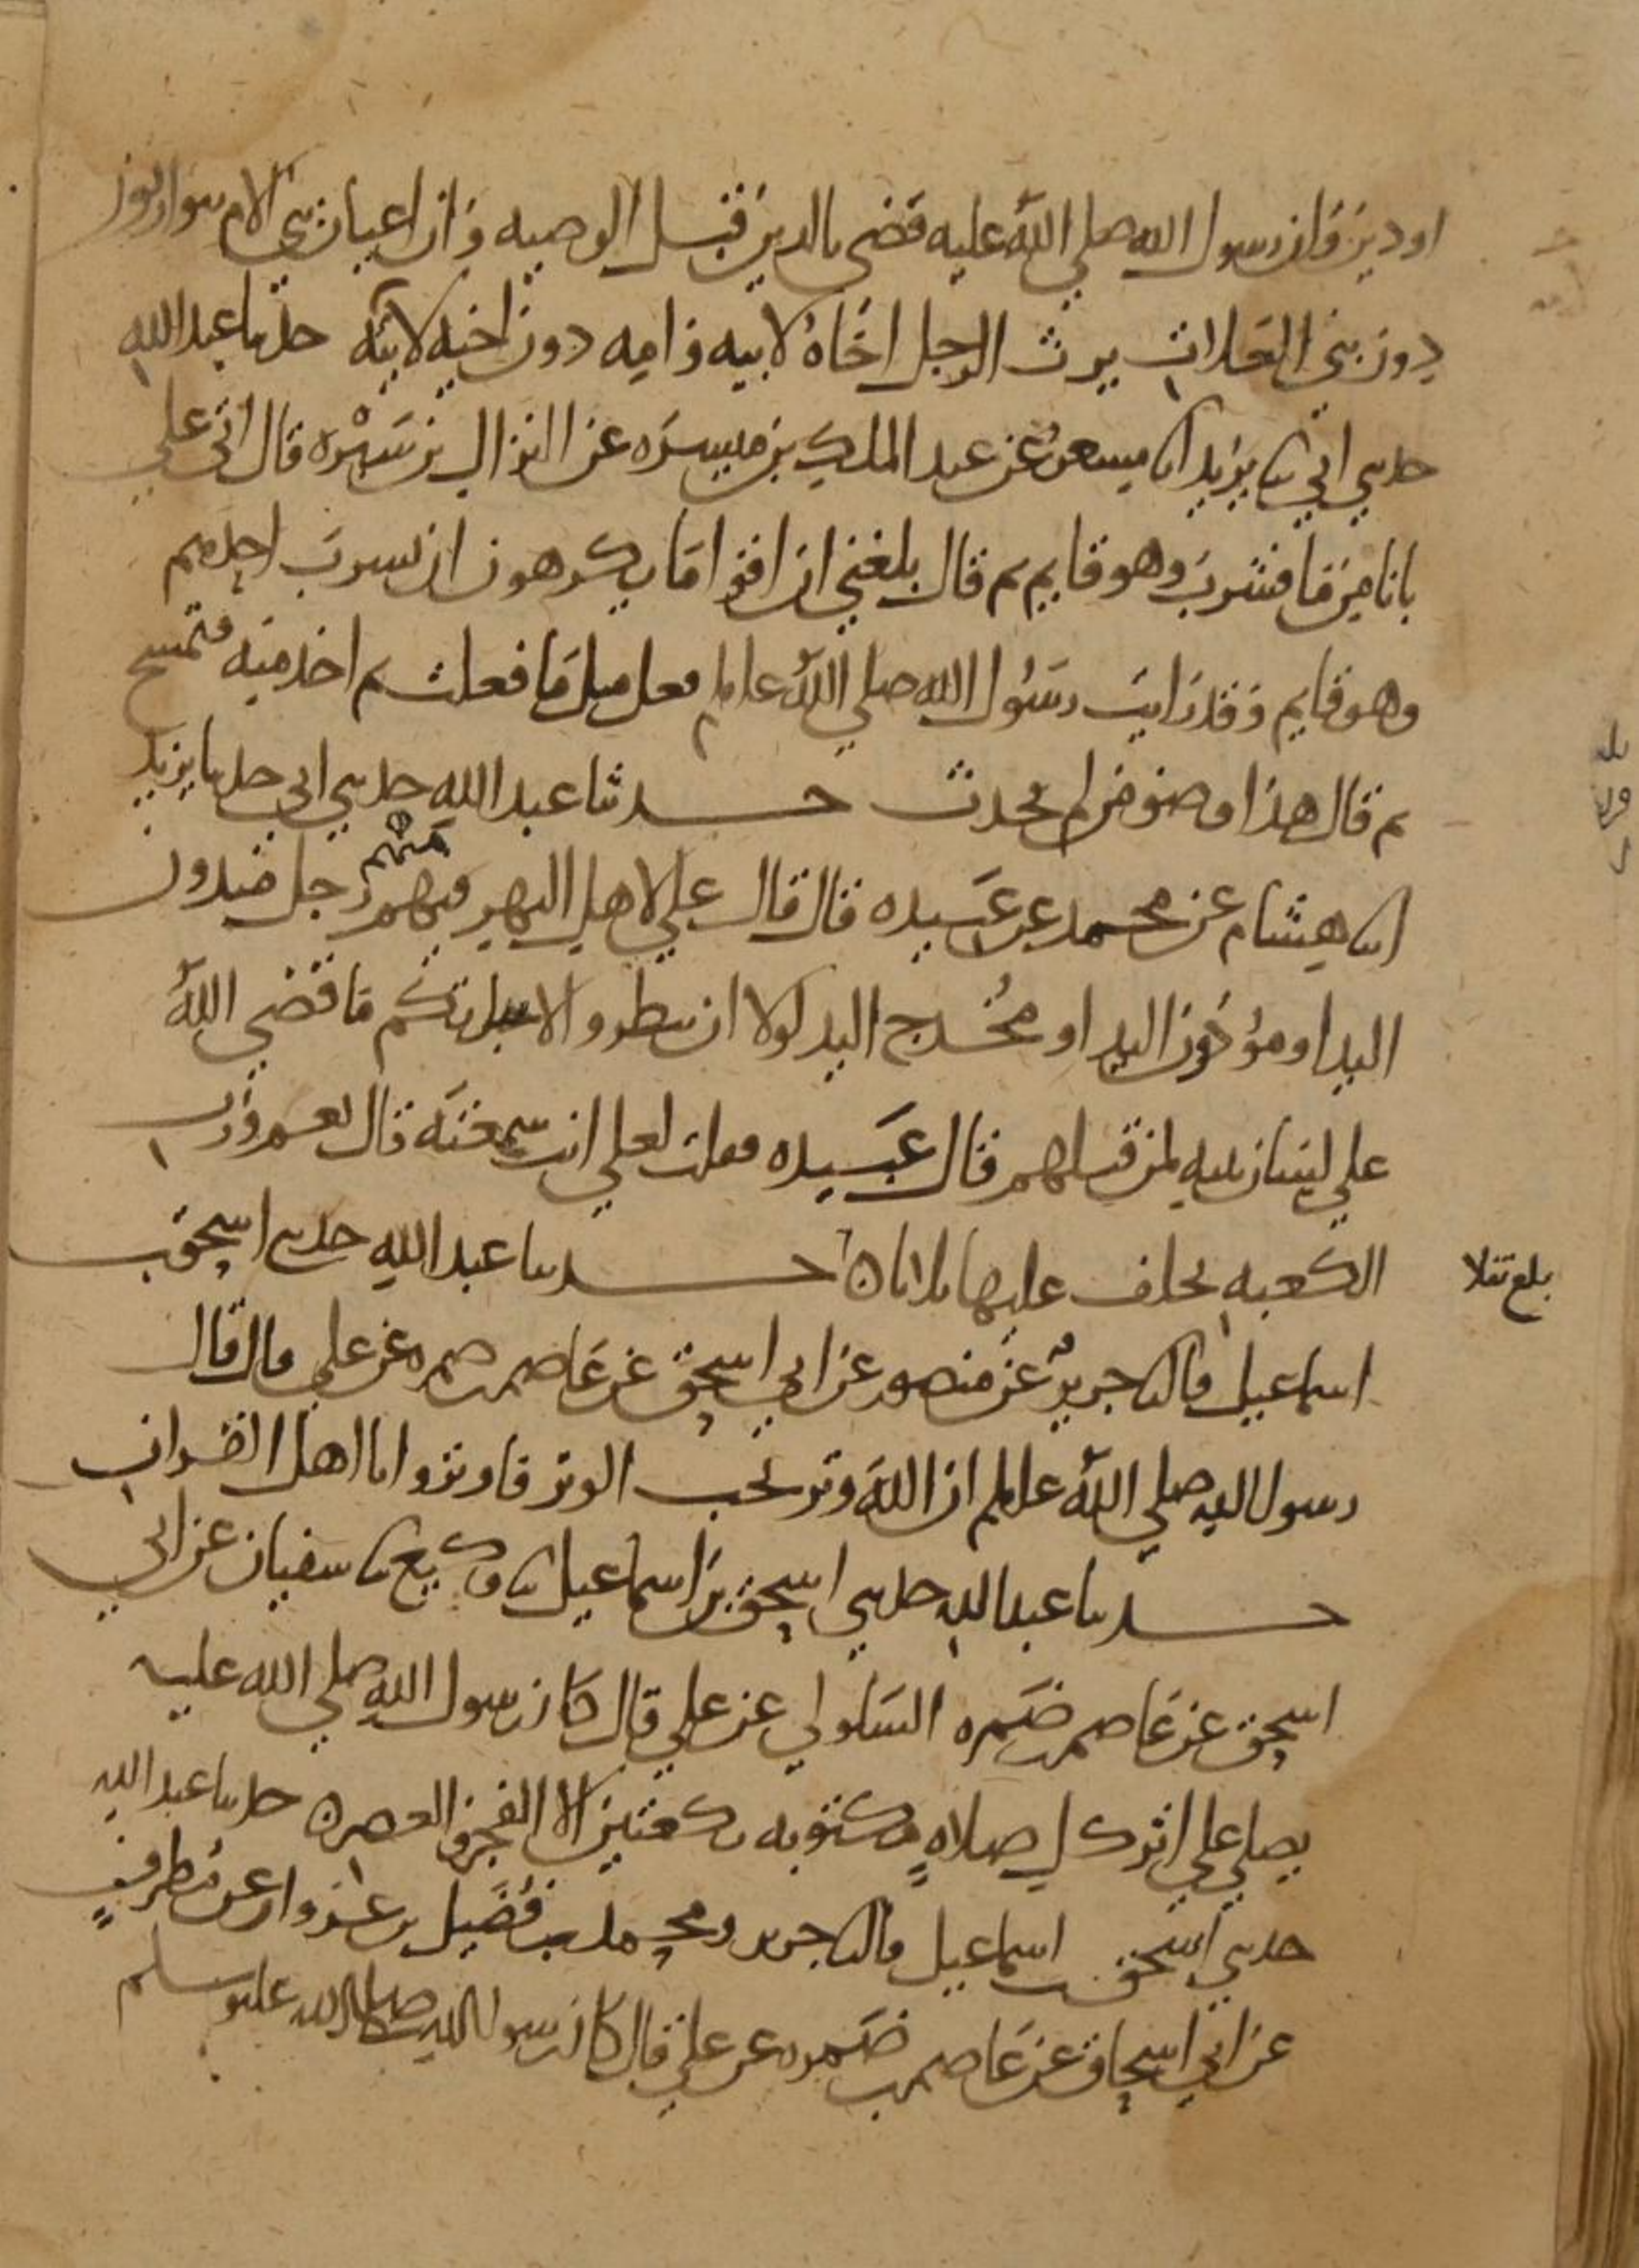 او دين وان رسول الله صلى الله عليه قضى بالدين قبل الوصيه وان اعيان بني الام يتوارثون
دون بني العلات يرث الرجل اخاه لابيه وامه دون اخيه لابيه حدثنا عبد الله
حدثني ابي ثنا يزيد انا مسعر عن عبد الملك بن ميسره عن النزال بن سبره قال اتى علي
بانا من ما فشرب وهو قايم ثم قال بلغني ان اقواما يكرهون ان يشرب احدهم
وهو قايم وقد رايت رسول الله صلى الله عليه وسلم فعل مثل ما فعلت ثم اخذ منه فتمسح
ثم قال هذا وضو من لم يحدث حدثنا عبد الله حدثني ابي حدثنا يزيد
انا هشام عن محمد عن عبيده قال قال علي لاهل النهر فيهم رجل مثدون
منهم
اليد او مؤذون اليد او مخدج اليد لولا ان تبطروا لانباتكم ما قضى الله
على لسان نبيه لمن قتلهم قال عبيده فقلت لعلي انت سمعته قال نعم ورب
الكعبه يحلف عليها ثلاثا حدثنا عبد الله حدثني اسحق بن
بلغ نقلا
اسماعيل قال ثنا جرير عن منصور عن ابي اسحق عن عاصم بن ضمره عن علي قال قال
رسول الله صلى الله عليه وسلم ان الله وتر يحب الوتر فاوتروا يا اهل القران
حدثنا عبد الله حدثني اسحق بن اسماعيل ثنا وكيع ثنا سفيان عن ابي
اسحق عن عاصم بن ضمره السلولي عن علي قال كان رسول الله صلى الله عليه
يصلي على اثر كل صلاه مكتوبه ركعتين الا الفجر والعصر حدثنا عبد الله
حدثني اسحق بن اسماعيل قال ثنا جرير ومحمد بن فضيل بن غزوان عن مطرف
عن ابي اسحاق عن عاصم بن ضمره عن علي قال كان رسول الله صلى الله عليه وسلم